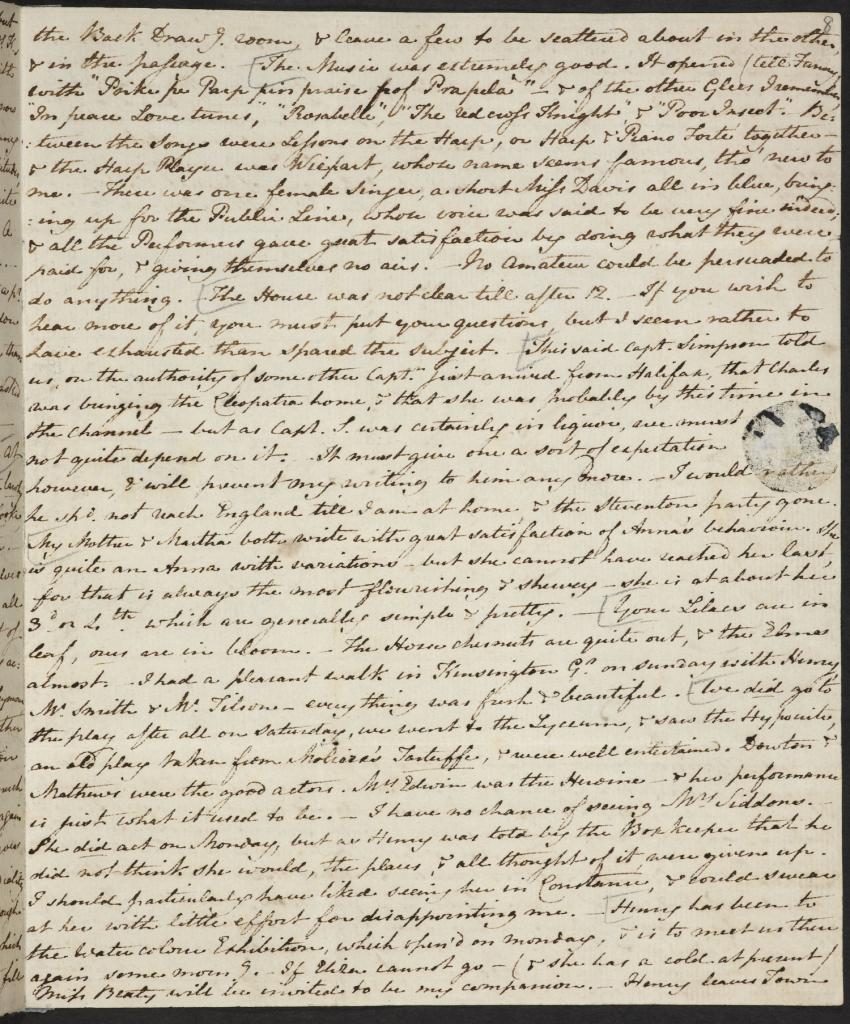 8
the Back Draws. room, & leave a few to be scattered about in the other,
& in the passage. The Music was extremely good. It opened (tell Fanny)
with "Poike pe Parp pin praise pof Prapela" — & of the other Glees I remember
"In peace Love tunes," "Rosabelle," "The red cross Knight" & "Poor Insect". Be-
:tween the Songs were Lessons on the Harp, or Harp & Piano Forte together —
& the Harp Player was Wiepart, whose name seems famous, tho' new to
me. — There was one female singer, a short Miss Davis all in blue, bring-
:ing up for the Public Line, whose voice was said to be very fine indeed;
& all the Performers gave great satisfaction by doing what they were
paid for, & giving themselves no airs. — No Amateur could be persuaded to
do anything. The House was not clear till after 12. — If you wish to
hear more of it, you must put your questions, but I seem rather to
have exhausted than spared the subject. This said Capt. Simpson told
us, on the authority of some other Capt.n just arrived from Halifax, that Charles
was bringing the Cleopatra home, & that she was probably by this time in
the Channel — but as Capt. S. was certainly in liquor, we must
not quite depend on it. It must give one a sort of expectation
however, & will prevent my writing to him any more. — I would rather
he shd. not reach England till I am at home, & the Steventon party gone.
My Mother & Martha both write with great satisfaction of Anna's behaviour. She
is quite an Anna with variations — but she cannot have reached her last,
for that is always the most flourishing & shewey — she is at about her
3d. or 4.th which are generally simple & pretty. — Your Lilacs are in
leaf, ours are in bloom. — The Horse chesnuts are quite out, & the Elms
almost. — I had a pleasant walk in Kensington Gs. on Sunday with Henry,
Mr. Smith & Mr. Tilson — everything was fresh & beautiful. We did go to
the play after all on Saturday, we went to the Lyceum, & saw the Hypocrite,
an old play taken from Moliere's Tartuffe, & were well entertained. Dowton &
Mathews were the good actors. Mrs. Edwin was the Heroine — & her performance
is just what it used to be. — I have no chance of seeing Mrs. Siddons. —
She did act on Monday, but as Henry was told by the Boxkeeper that he
did not think she would, the places, & all thought of it, were given up.
I should particularly have liked seeing her in Constance, & could swear
at her with little effort for disappointing me. — Henry has been to
the Watercolour Exhibition, which open'd on monday, & is to meet us there
again some morng. — If Eliza cannot go — (& she has a cold at present)
Miss Beaty will be invited to be my companion. — Henry leaves Town